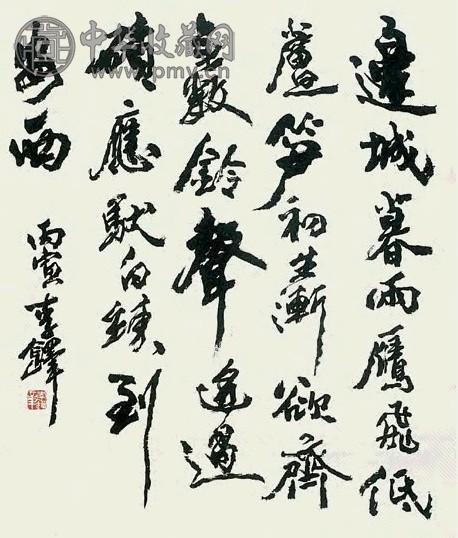 邊城暮雨鴈飛低
蘆笋初生漸欲齊
無數鈴聲遙過
磧應馱白練到
安西
丙寅李鐸
中华收藏网
www.pmv.cn